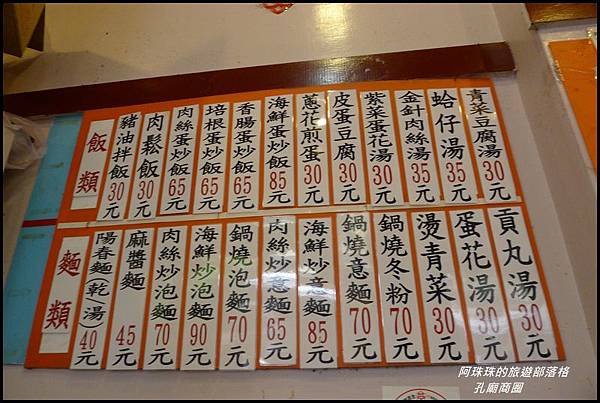 飯類
豬油拌飯30元
肉鬆飯30元
肉絲蛋炒飯65元
培根蛋炒飯65元
香腸蛋炒飯65元
海鮮蛋炒飯85元
蔥花煎蛋30元
皮蛋豆腐30元
紫菜蛋花湯30元
金針肉絲湯35元
蛤仔湯35元
青菜豆腐湯30元
麵類
陽春麵(乾湯)40元
麻醬麵45元
肉絲炒泡麵70元
海鮮炒泡麵90元
鍋燒泡麵70元
肉絲炒意麵65元
海鮮炒意麵85元
鍋燒意麵70元
鍋燒冬粉70元
燙青菜30元
蛋花湯30元
貢丸湯30元
阿珠珠的旅遊部落格
孔廟商圈